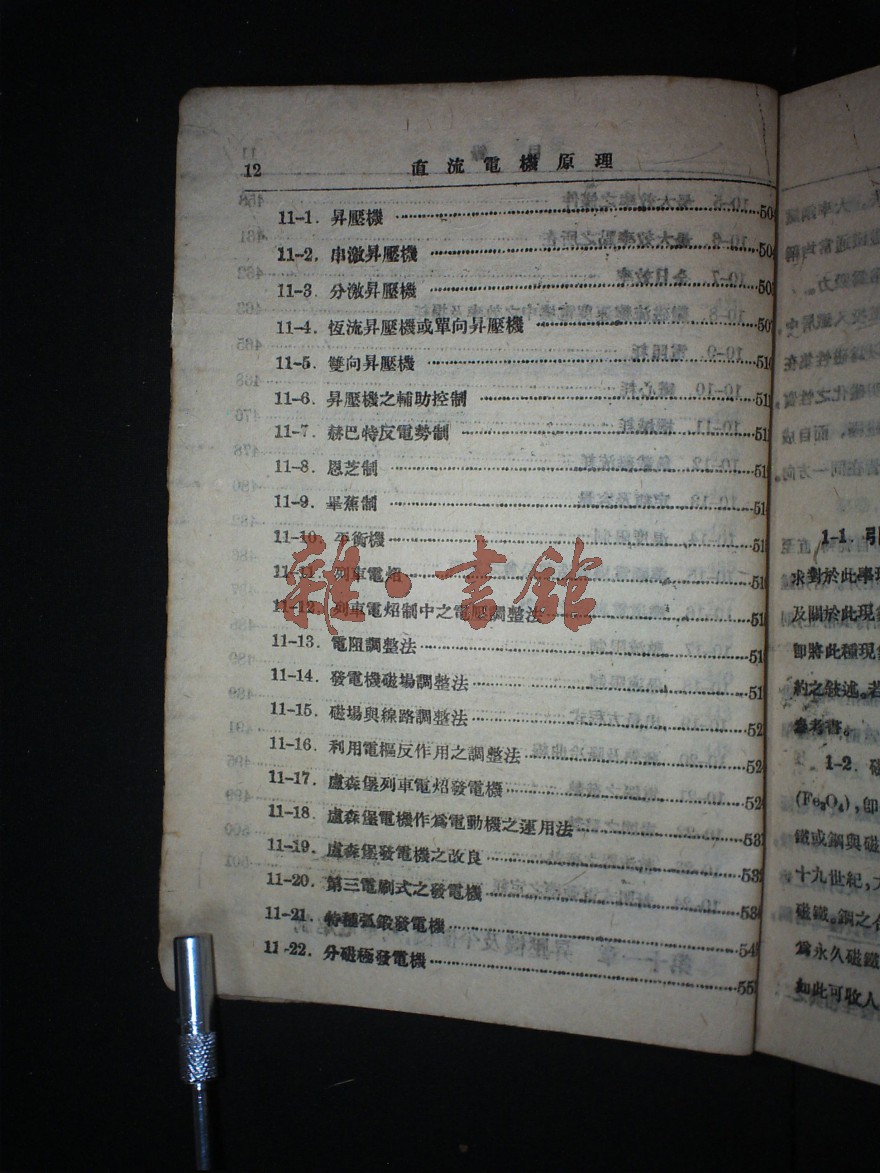 12
直流電機原理
11-1. 昇壓機 50
11-2. 串激昇壓機 504
11-3. 分激昇壓機 50
11-4. 恆流昇壓機或單向昇壓機 507
11-5. 雙向昇壓機 510
11-6. 昇壓機之輔助控制 51
11-7. 赫巴特反電勢制 51
11-8. 恩芝制 51
11-9. 畢蕉制 51
11-10. 平衡機 51
11-11. 列車電炤 51
11-12. 列車電炤制中之電壓調整法 51
11-13. 電阻調整法 51
11-14. 發電機磁場調整法 51
11-15. 磁場與線路調整法 52
11-16. 利用電樞反作用之調整法 52
11-17. 盧森堡列車電炤發電機 52
11-18. 盧森堡電機作爲電動機之運用法 53
11-19. 盧森堡發電機之改良 53
11-20. 第三電刷式之發電機 53
11-21. 特種弧鍛發電機 54
11-22. 分磁極發電機 55
雜·書館
1-1.
求對於此學
及關於此現
卽將此種現
約之敘述。若
參考書。
1-2.
(Fe₃O₄), 卽
鐵或鋼與磁
十九世紀,
磁鐵。鋼之合
爲永久磁鐵
如此可收入